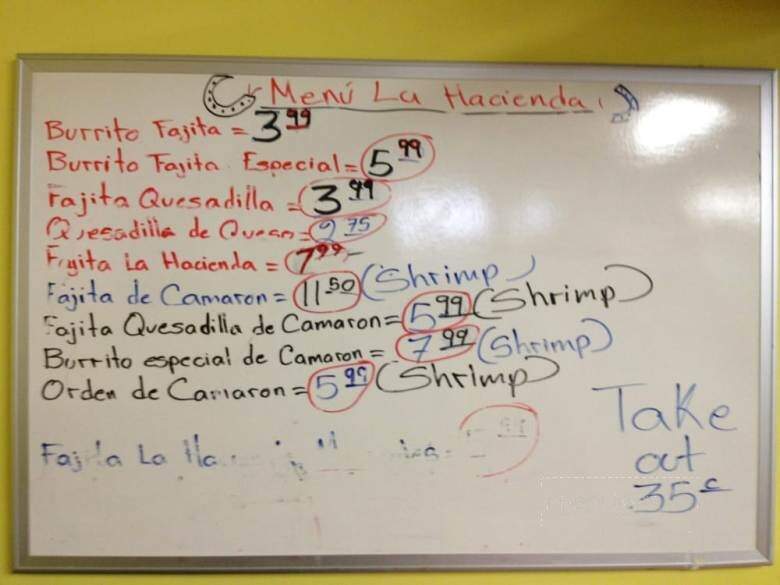 Menú La Hacienda
Burrito Fajita = 3 99
Burrito Fajita Especial = 5 99
Fajita Quesadilla = 3 99
Quesadilla de Queso = 2 75
Fajita La Hacienda = 7 99
Fajita de Camaron = 11 50 (Shrimp)
Fajita Quesadilla de Camaron = 5 99 (Shrimp)
Burrito especial de Camaron = 7 99 (Shrimp)
Orden de Camaron = 5 99 (Shrimp)
Fajita La
Take
out
.35¢